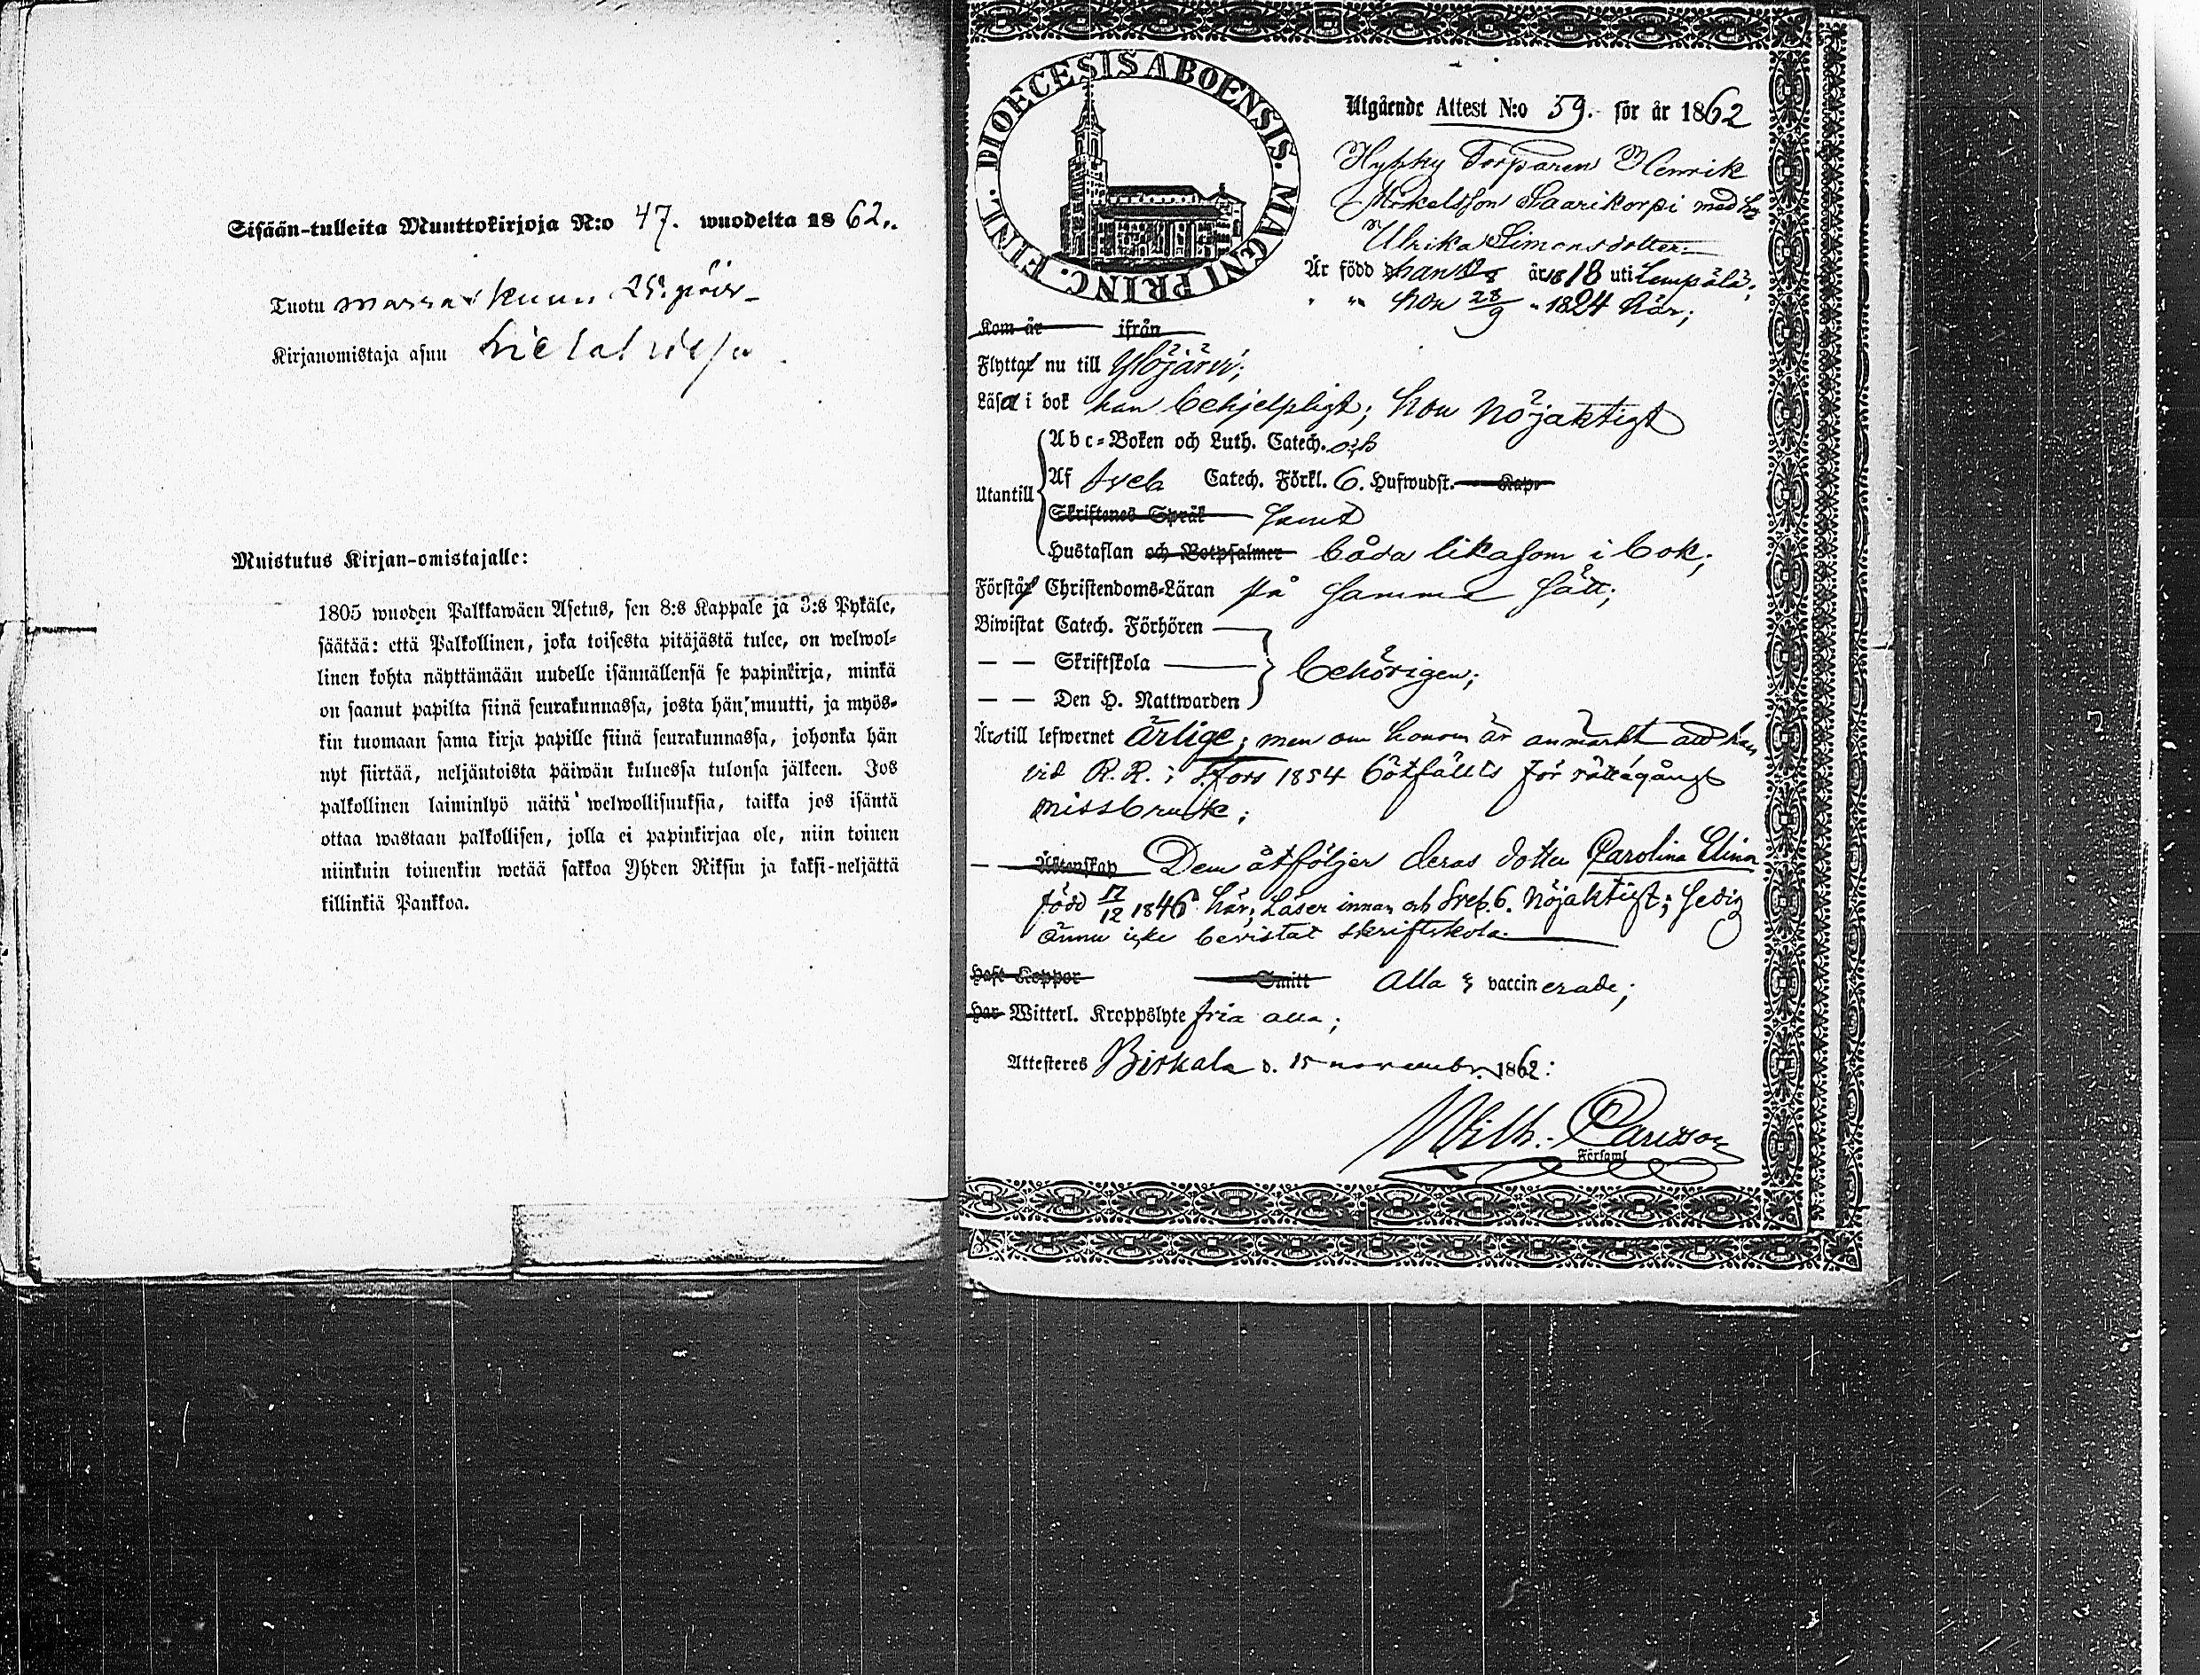 Sisään-tulleita Muuttokirjoja N:o 47. wuodelta 1862.
Tuotu marraskuun 25. päiv
Kirjanomistaja asuu
Muistutus Kirjan-omistajalle:
1805 wuoden Palkkawäen Asetus, sen 8:s Kappale ja 3:s Pykäle,
säätää: että Palkollinen, joka toisesta pitäjästä tulee, on welwol-
linen kohta näyttämään uudelle isännällensä se papinkirja, minkä
on saanut papilta siinä seurakunnassa, josta hän muutti, ja myös-
kin tuomaan sama kirja papille siinä seurakunnassa, johonka hän
nyt siirtää, neljäntoista päiwän kuluessa tulonsa jälkeen. Jos
palkollinen laiminlyö näitä welwollisuuksia, taikka jos isäntä
ottaa wastaan palkollisen, jolla ei papinkirjaa ole, niin toinen
niinkuin toinenkin wetää sakkoa Yhden Riksin ja kaksi-neljättä
killinkiä Pankkoa.
DIOECESIS ABOENSIS. MAGNI PRINC. FINL.
Utgående Attest N:o 59. för år 1862
Hyhky Torparen Henrik
Mickelsson Saarikorpi med
Ulrika Simonsdotter
Är född han år 1818 uti Lempälä;
" " hon 28/9 " 1824 här;
Kom år ifrån
Flyttar nu till Ylöjärvi;
Läsa i bok han behjelpligt; hon nöjaktigt
Abc-Boken och Luth. Catech. och
Utantill Af Sveb Catech. Förkl. 6. Hufwudst. Kap.
Skriftenes Språk samt
Hustaflan och Botpsalmer båda likasom i bok;
Förstår Christendoms-Läran på samma sätt;
Biwistat Catech. Förhören
— — Skriftskola behörigen;
— — Den H. Nattwarden
Äro till lefwernet ärlige; men om honom är anmärkt att han
vid R.R. i T.fors 1854 bötfällts för rättegångs
missbruk;
Äktenskap Dem åtföljer deras dotter Carolina Elina
född 17/12 1846 här; Läser innan och Sveb. 6. Nöjaktigt; sedig
ännu icke bevistat skriftskola.
Haft Koppor Smitt Alla vaccinerade;
Har Witterl. Kroppslyte fria alla;
Attesteres Birkala d. 15 novembr. 1862:
Wilh. Carlsson
Församl